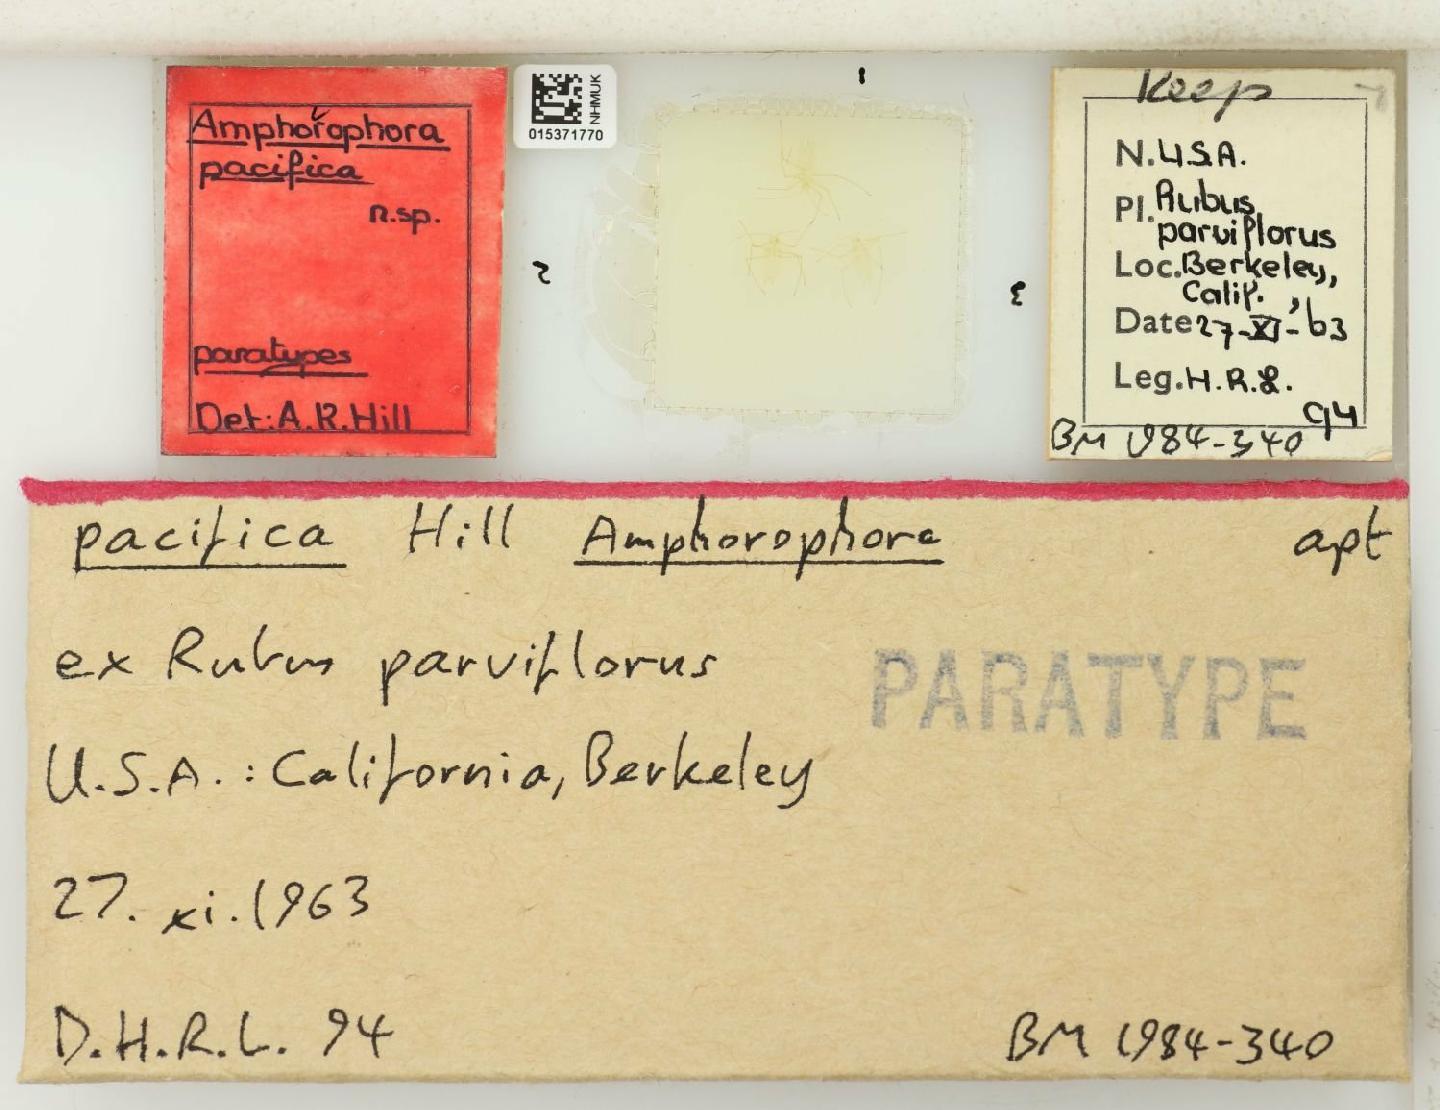 Amphorophora
pacifica
n.sp.
paratypes
Det: A.R.Hill
NHMUK
015371770
1
2
3
Keep
N.U.S.A.
Pl. Rubus
parviflorus
Loc. Berkeley,
Calif.
Date 27-XI-'63
Leg. H.R.L.
94
BM 1984-340
pacifica Hill Amphorophora apt
ex Rubus parviflorus
PARATYPE
U.S.A.: California, Berkeley
27. xi. 1963
D.H.R.L. 94
BM 1984-340